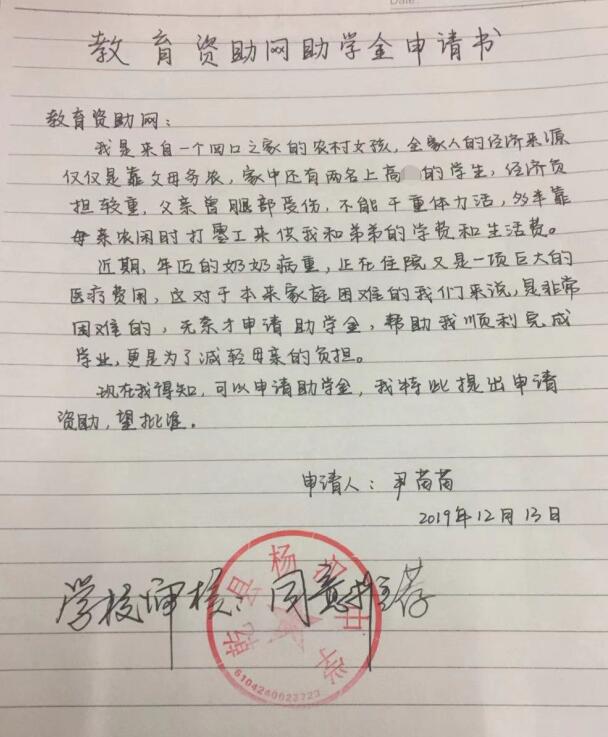 Date:
教育资助网助学金申请书
教育资助网：
我是来自一个四口之家的农村女孩，全家人的经济来源
仅仅是靠父母务农，家中还有两名上高 的学生，经济负
担较重，父亲曾腿部受伤，不能干重体力活，多半靠
母亲农闲时打零工来供我和弟弟的学费和生活费。
近期，年迈的奶奶病重，正在住院又是一项巨大的
医疗费用，这对于本来家庭困难的我们来说，是非常
困难的，无奈才申请助学金，帮助我顺利完成
学业，更是为了减轻母亲的负担。
现在我得知，可以申请助学金，我特此提出申请
资助，望批准。
申请人：尹苗苗
2019年12月13日
学校审核：同意推荐
乾县杨汉中学
6104240023723